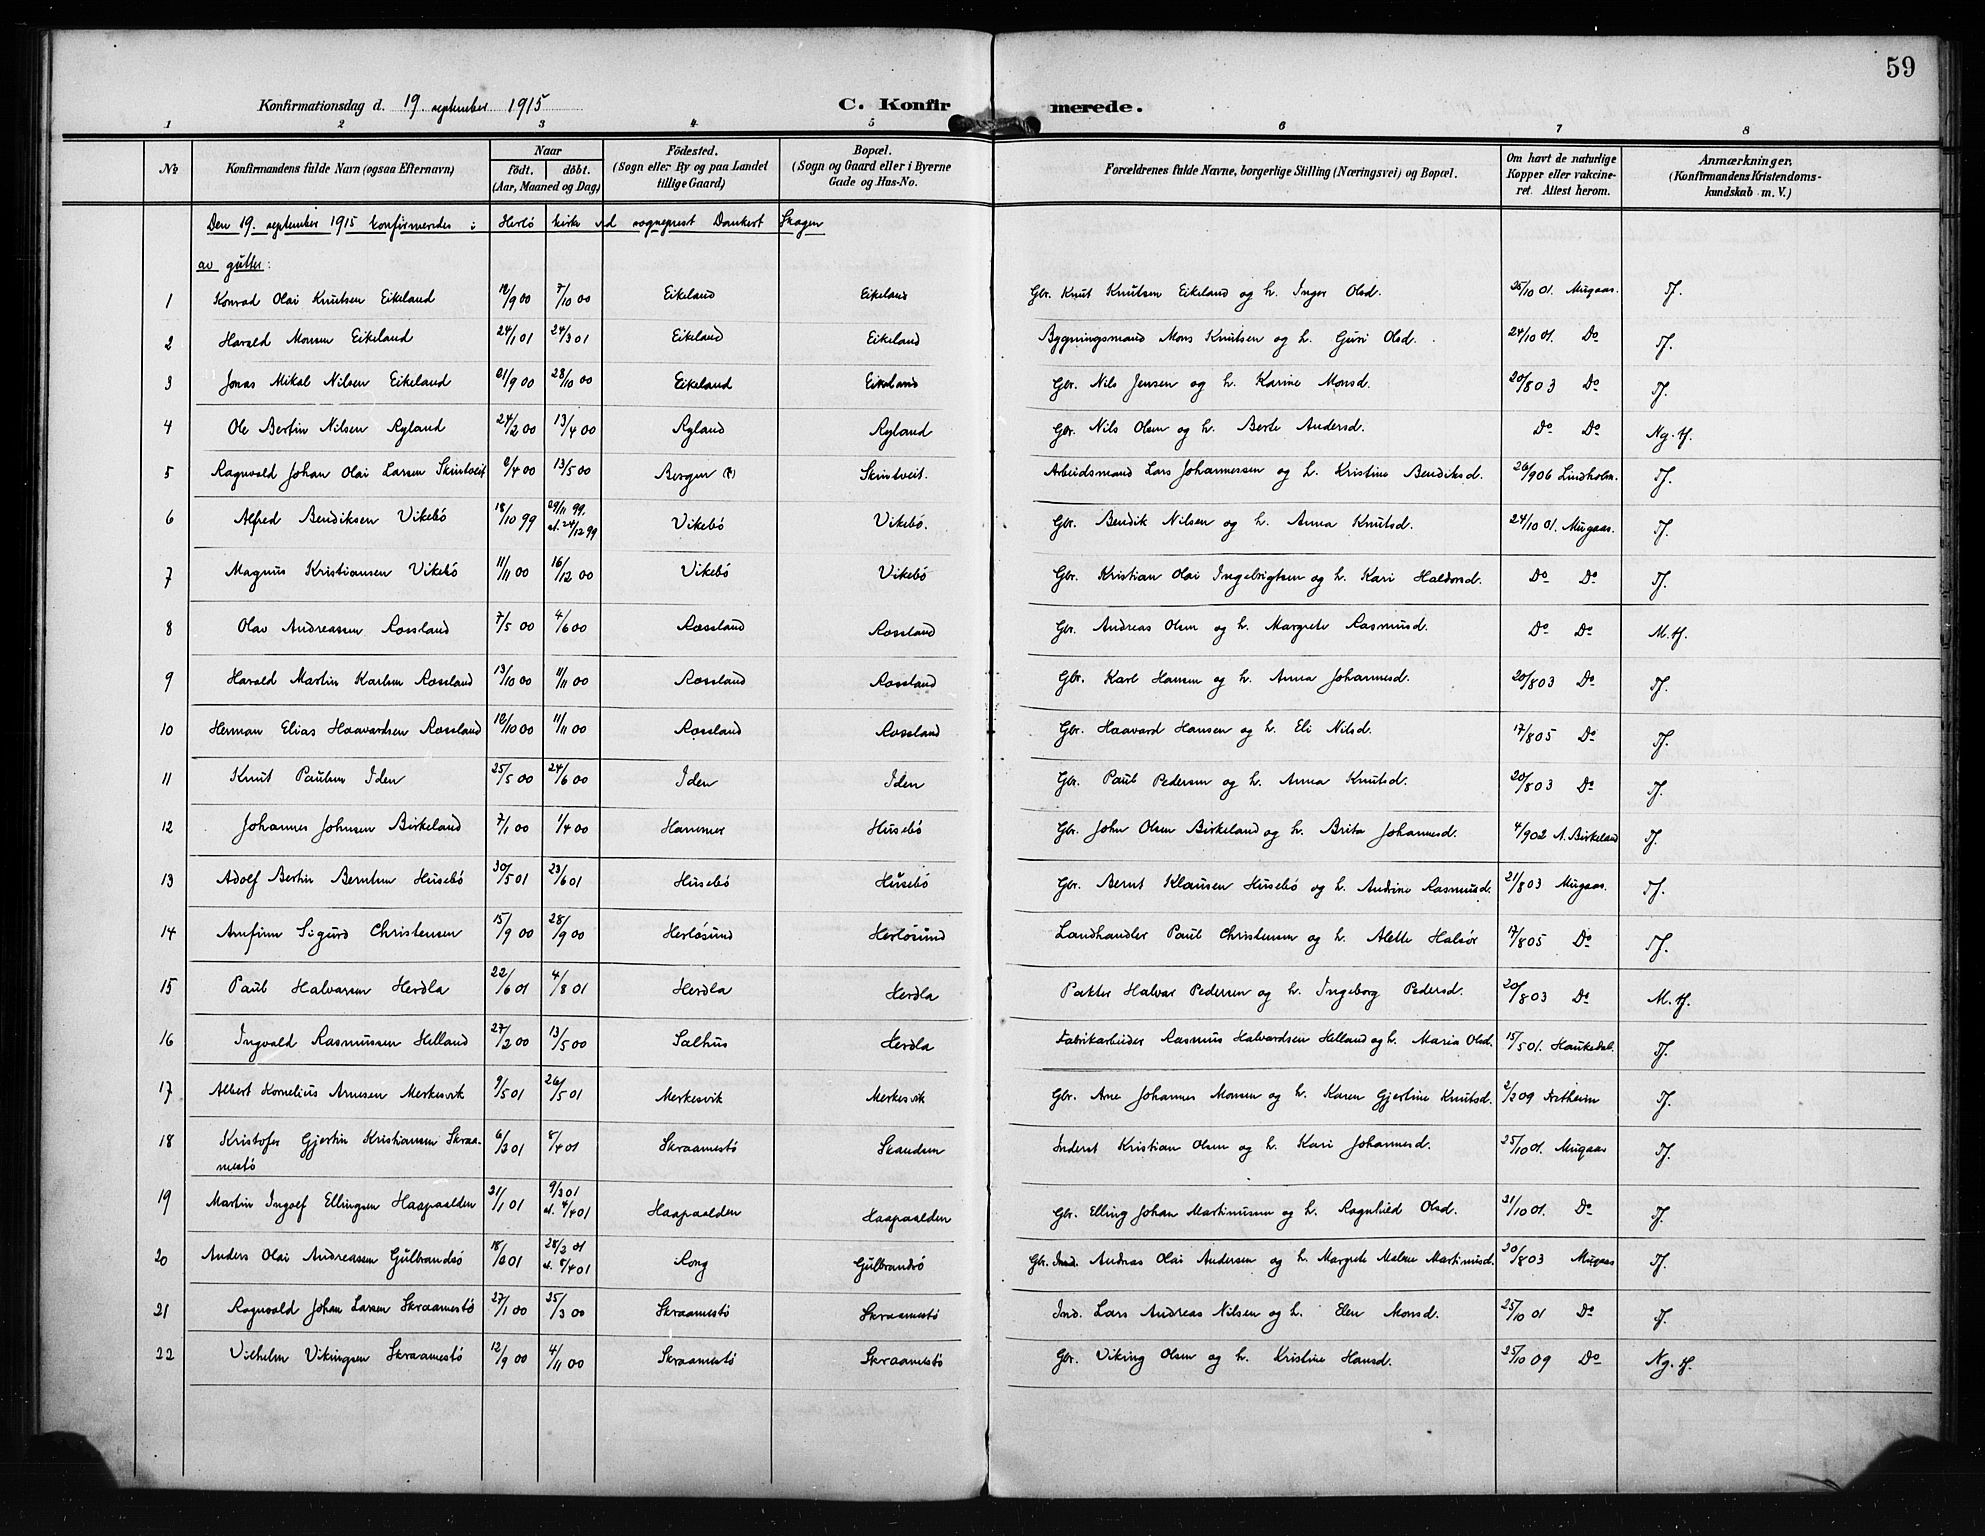 59
Konfirmationsdag d. 19. september 1915 C. Konfirmerede.
1 2 3 4 5 6 7 8
No Konfirmandens fulde Navn (ogsaa Efternavn) Naar födt. döbt. (Aar, Maaned og Dag) Födested. (Sogn eller By og paa Landet tillige Gaard) Bopæl. (Sogn og Gaard eller i Byerne Gade og Hus-No. Forældrenes fulde Navne, borgerlige Stilling (Næringsvei) og Bopæl. Om havt de naturlige Kopper eller vakcineret. Attest herom. Anmærkninger. (Konfirmandens Kristendomskundskab m. V.)
Den 19. september 1915 konfirmeredes i Herlö kirke ved sogneprest Dankert Skagen
av gutter:
1 Konrad Olai Knutsen Eikeland 12/9 00 7/10 00 Eikeland Eikeland Gbr. Knut Knutsen Eikeland og h. Inger Olsd. 25/10 01. Mugaas. Tf.
2 Harald Monsen Eikeland 24/1 01 24/3 01 Eikeland Eikeland Bygningsmand Mons Knutsen og h. Guri Olsd. 24/10 01. Do Tf.
3 Jonas Mikal Nilsen Eikeland 21/9 00 28/10 00 Eikeland Eikeland Gbr. Nils Jensen og h. Karine Monsd. 20/8 03 Do Tf.
4 Ole Bertin Nilsen Ryland 24/2 00 13/4 00 Ryland Ryland Gbr. Nils Olsen og h. Berte Andersd. Do Do Ng. tf.
5 Ragnvald Johan Olai Larsen Skintveit 2/4 00 13/5 00 Bergen (?) Skintveit. Arbeidsmand Lars Johannessen og h. Kristine Bendiksd. 26/9 06 Lindholm. Tf.
6 Alfred Bendiksen Vikebö 18/10 99 29/11 99. st. 24/12 99 Vikebö Vikebö. Gbr. Bendik Nilsen og h. Anna Knutsd. 24/10 01. Mugaas. Tf.
7 Magnus Kristiansen Vikebö 11/11 00 16/12 00 Vikebö Vikebö Gbr. Kristian Olai Ingebrigtsen og h. Kari Haldorsd. Do Do Tf.
8 Olav Andreassen Rossland 7/5 00 4/6 00 Rossland Rossland Gbr. Andreas Olsen og h. Margrete Rasmusd. Do Do M. tf.
9 Harald Martin Karlsen Rossland 13/10 00 11/11 00 Rossland Rossland Gbr. Karl Hansen og h. Anna Johannesd. 20/8 03 Do Tf.
10 Herman Elias Haavardsen Rossland 12/10 00 11/11 00 Rossland Rossland Gbr. Haavard Hansen og h. Eli Nilsd. 17/8 05 Do Tf.
11 Knut Paulsen Iden 25/5 00 24/6 00 Iden Iden Gbr. Paul Pedersen og h. Anna Knutsd. 20/8 03 Do Tf.
12 Johannes Johnsen Birkeland 7/1 00 1/4 00 Hammer Husebö Gbr. John Olsen Birkeland og h. Brita Johannesd. 4/9 02 A. Birkeland Tf.
13 Adolf Bertin Berntsen Husebö 30/5 01 23/6 01 Husebö Husebö Gbr. Bernt Klausen Husebö og h. Andrine Rasmusd. 21/8 03 Mugaas. Tf.
14 Arnfinn Sigurd Christensen 15/9 00 28/9 00 Herlösund Herlösund Landhandler Paul Christensen og h. Alette Halsör 17/8 05 Do Tf.
15 Paul Halvarsen Herdla 22/6 01 4/8 01 Herdla Herdla Pakter Halvar Pedersen og h. Ingeborg Pedersd. 20/8 03 Do M. tf.
16 Ingvald Rasmussen Helland 27/2 00 13/5 00 Salhus Herdla Fabrikarbeider Rasmus Halvardsen Helland og h. Maria Olsd. 15/5 01. Haukedal. Tf.
17 Albert Kornelius Arnesen Merkesvik 9/5 01 26/5 01 Merkesvik Merkesvik Gbr. Arne Johannes Monsen og h. Karen Gjertine Knutsd. 2/2 09 Tf.
18 Kristofer Gjertin Kristiansen Skraa-
mestö 6/3 01 8/4 01 Skraamestö Skandsen Inderst Kristian Olsen og h. Kari Johannesd. 25/10 01. Mugaas Tf.
19 Martin Ingolf Ellingsen Haapaalden 21/1 01 9/3 01 st. 4/4 01 Haapaalden Haapaalden Gbr. Elling Johan Martinussen og h. Ragnhild Olsd. 21/10 01. Do Tf.
20 Anders Olai Andreassen Gulbrandsö 18/2 01 28/2 01 st. 8/4 01 Rong Gulbrandsö Gbr. Ind. Andreas Olai Andersen og h. Margrete Malene Martinusd. 20/8 03 Mugaas Tf.
21 Ragnvald Johan Larsen Skraamestö 27/1 00 25/3 00 Skraamestö Skraamestö Ind. Lars Andreas Nilsen og h. Elen Monsd. 25/10 01 Do Tf.
22 Vilhelm Vikingsen Skraamestö 12/9 00 4/11 00 Skraamestö Skraamestö Gbr. Viking Olsen og h. Kristine Hansd. 25/10 09 Do Ng. tf.